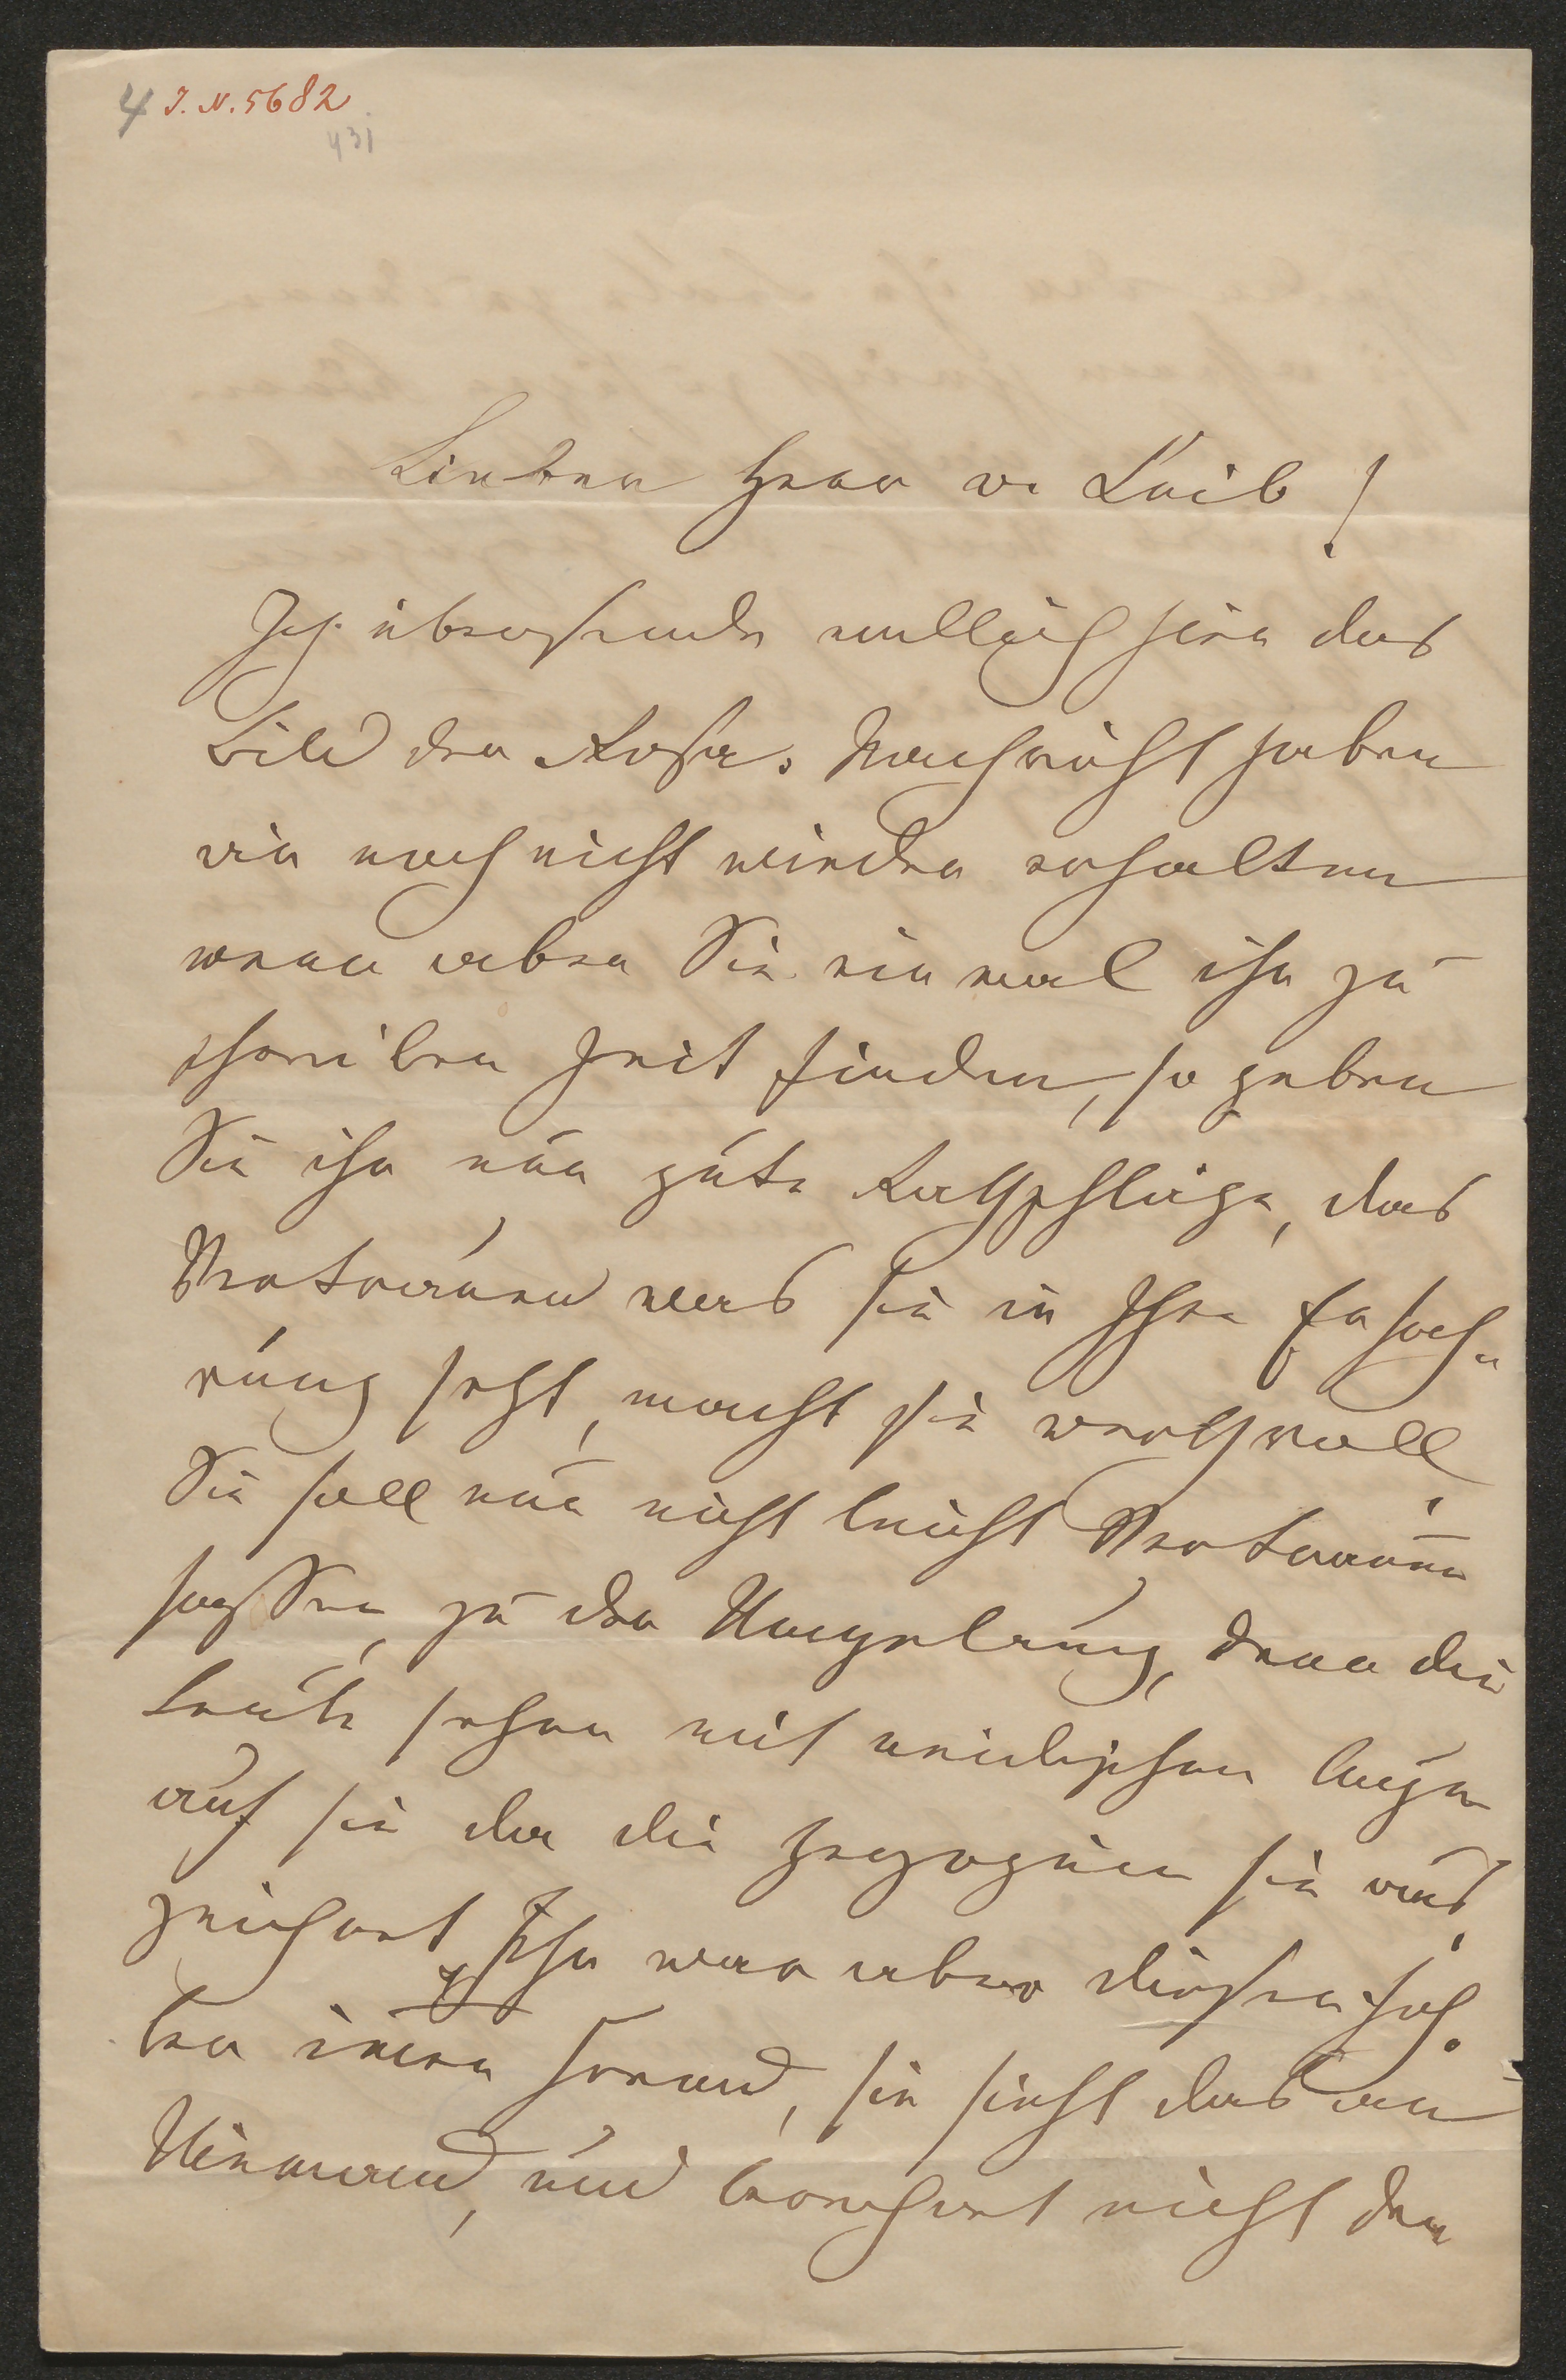 4 I. N. 5682
431
Lieber Herr v. Laib!
Ich übersende endlich hier das
Bild der Rosa. Nachricht haben
wir noch nicht wieder erhalten
wenn aber Sie einmal ihr zu
schreiben Zeit finden, so geben
Sie ihr nur gute Rathschläge, das
Vertrauen was sie in Ihre Erfah-
rung setzt, macht sie werthvoll.
Sie soll nur nicht leicht Vertrauen
fassen, zu der Umgebung, denn die
Leute sehen mit neidischen Augen
auf sie da die Herzogin sie aus
zeichnet. Ihr war aber dieses
immer fremd, sie sieht das an
Niemand, und berechnet nicht den